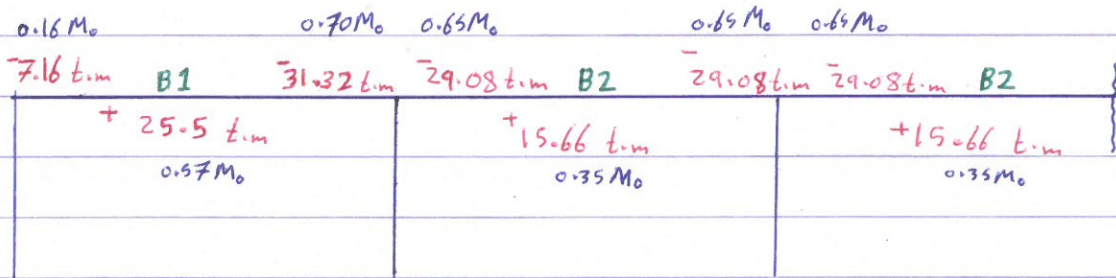 0.16 Mo 0.70Mo 0.65Mo 0.65Mo 0.65Mo
-7.16 t.m B1 -31.32 t.m -29.08 t.m B2 -29.08 t.m -29.08 t.m B2
+ 25.5 t.m +15.66 t.m +15.66 t.m
0.57Mo 0.35Mo 0.35Mo